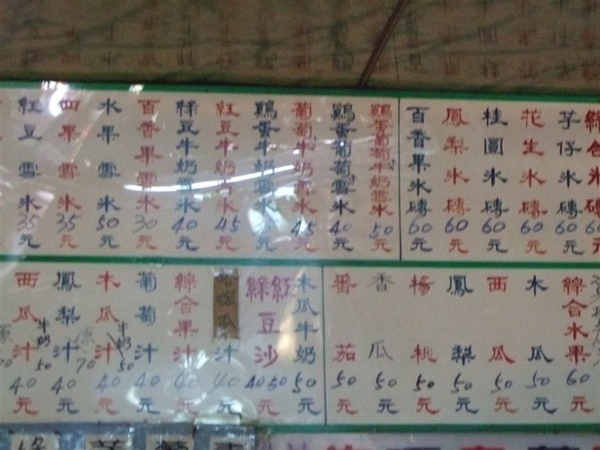 綜合冰磚60元
芋仔冰磚60元
花生冰磚60元
桂圓冰磚60元
鳳梨冰磚60元
百香果冰磚60元
鷄蛋葡萄牛奶雪氷50元
鷄蛋葡萄雪氷40元
葡萄牛奶雪氷45元
鷄蛋牛奶雪氷
紅豆牛奶雪氷45元
綠豆牛奶雪氷40元
百香果雪氷30元
水果雪氷50元
四果雪氷35元
紅豆雪氷35元
綜合水果60元
木瓜50元
西瓜50元
鳳梨50元
楊桃50元
香瓜50元
番茄50元
木瓜牛奶50元
紅綠豆沙40 50元
汁40元
綜合果汁40元
葡萄汁40元
木瓜汁40元
牛奶50
鳳梨汁40元
牛奶50
西瓜汁40元